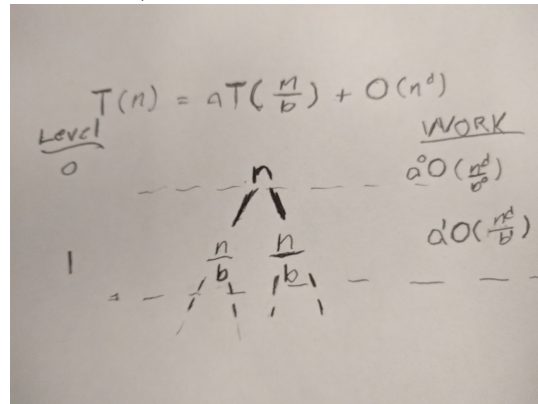 T(n) = aT(n/b) + O(n^d)
Level WORK
0 n a^0 O(n^d/b^0)
1 n/b n/b a^1 O(n^d/b^1)